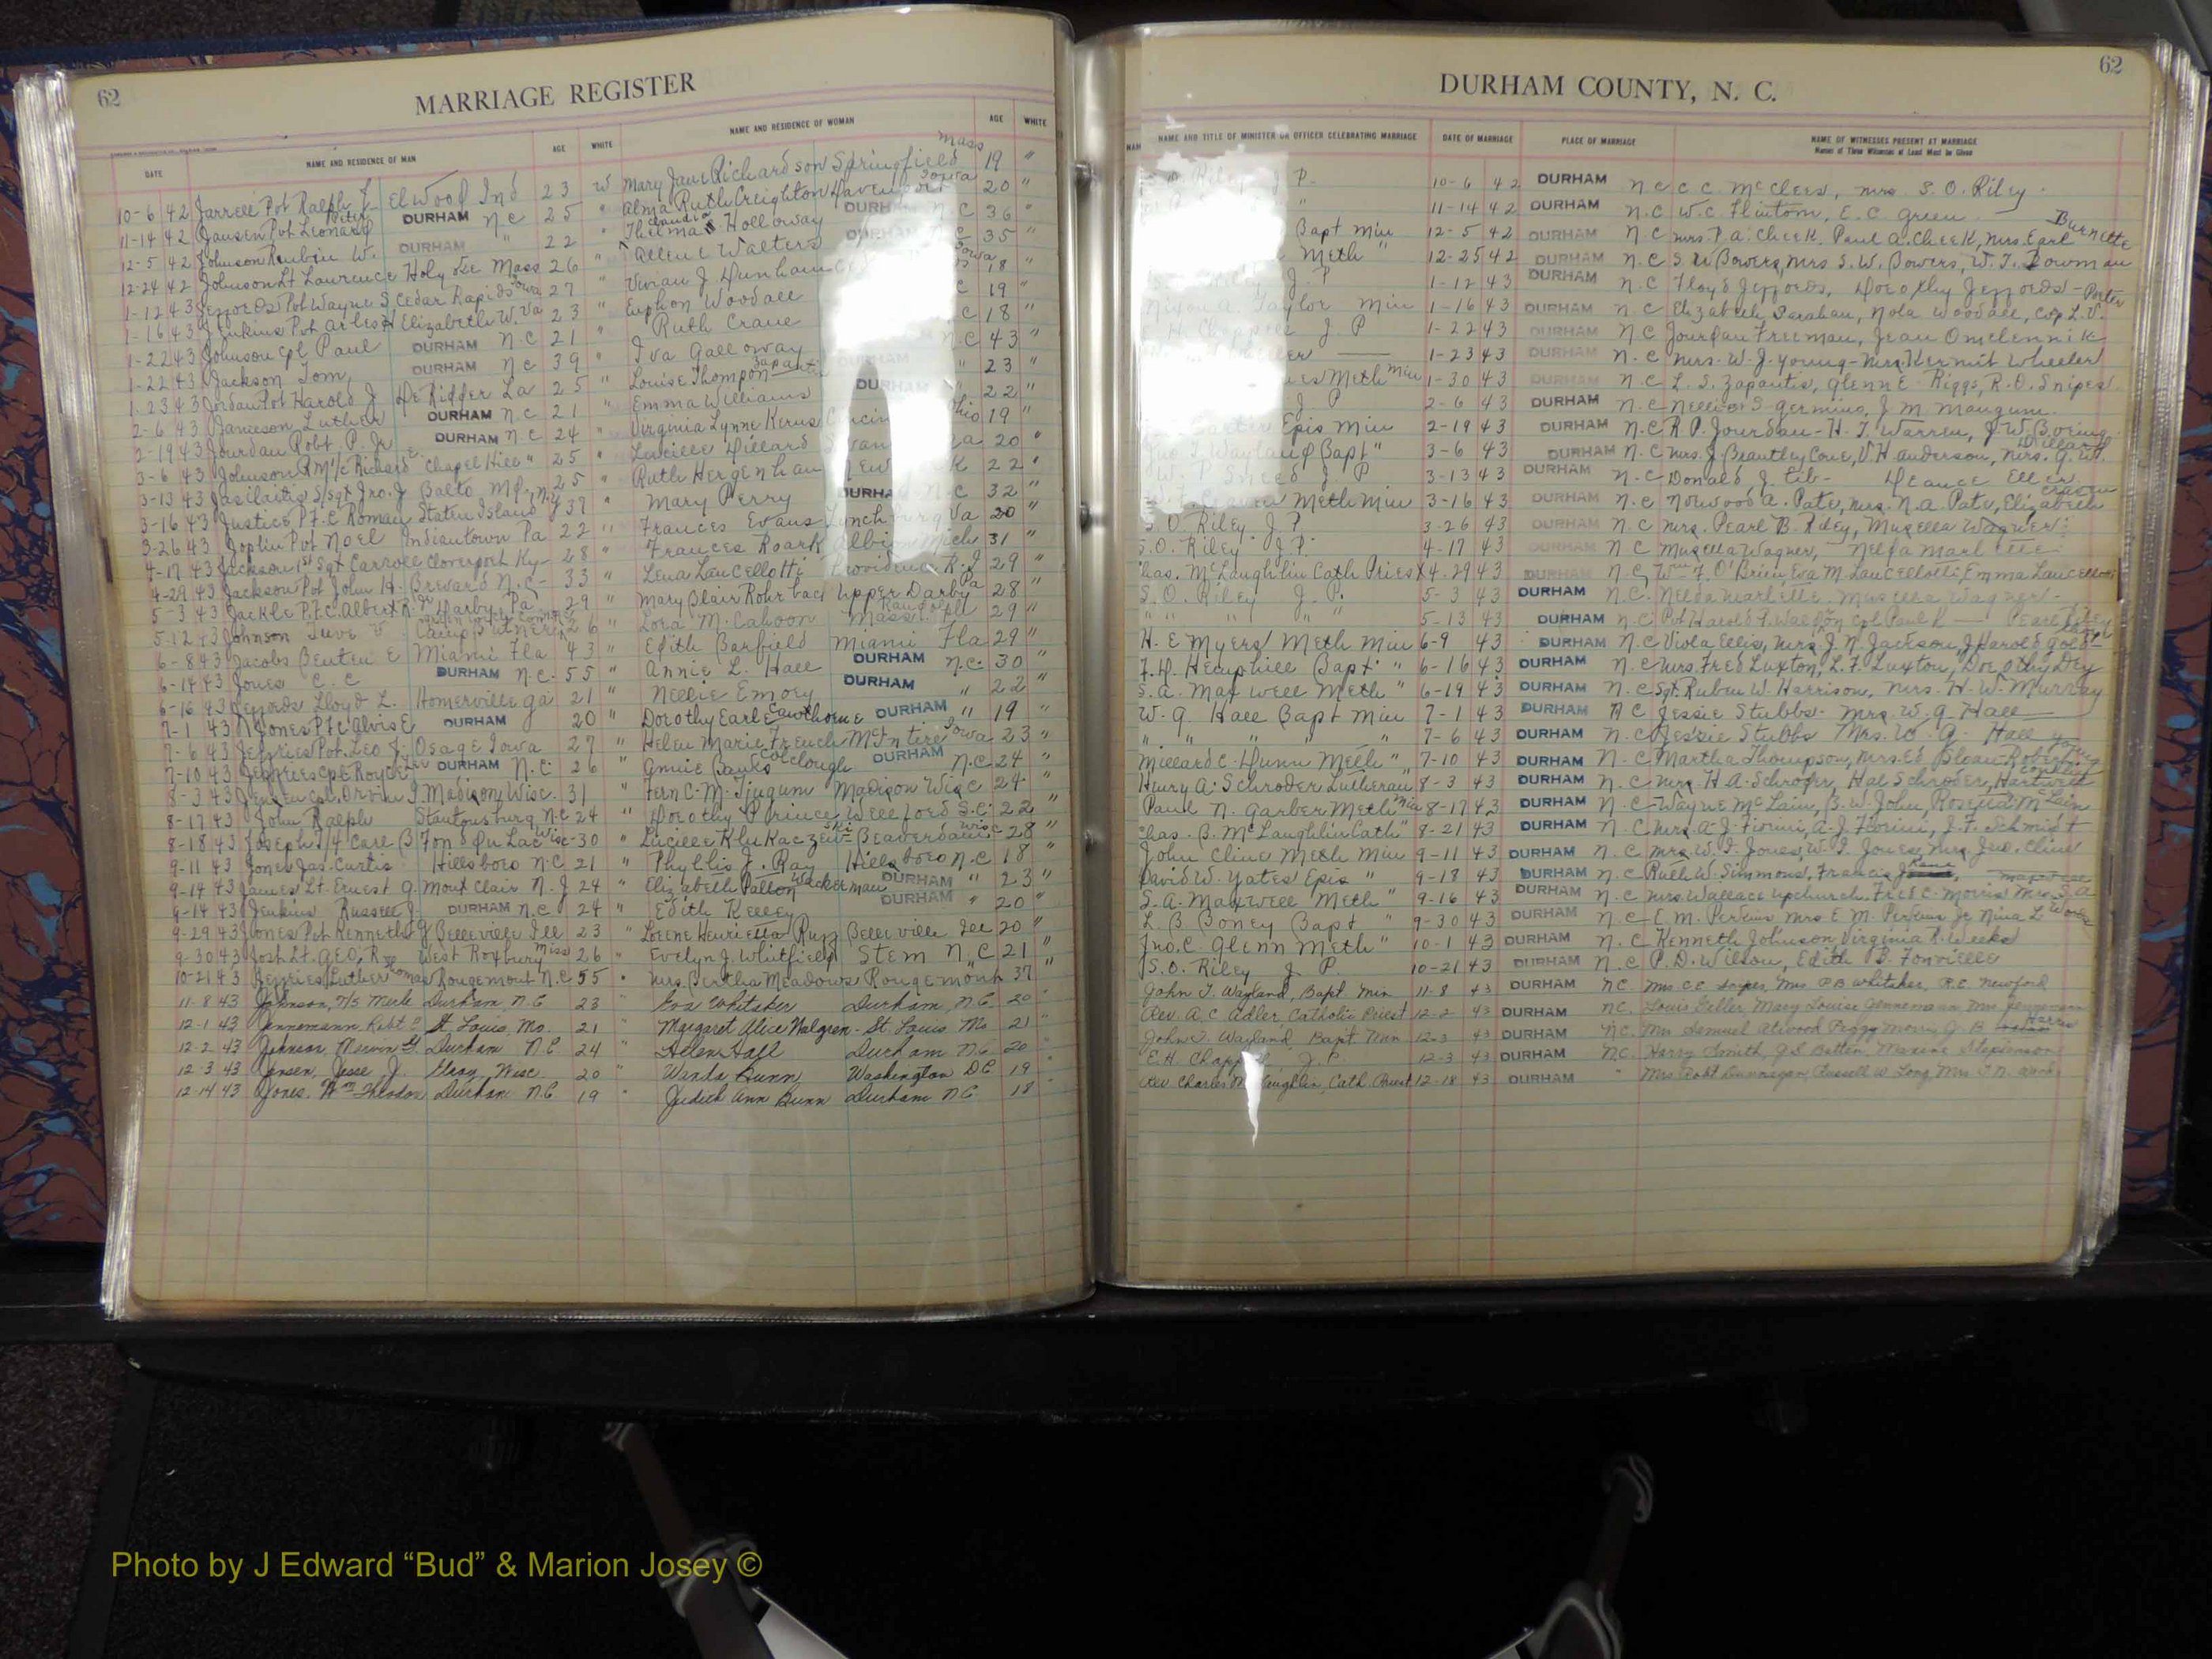 62
MARRIAGE REGISTER
DATE NAME AND RESIDENCE OF MAN AGE WHITE NAME AND RESIDENCE OF WOMAN AGE WHITE
10-6 42 Jarrell Pvt Ralph J. Elwood Ind 23 W Mary Jane Richardson Springfield Mass 19 "
11-14 42 Jansen Pvt Leonard Peter DURHAM N C 25 " Alma Ruth Creighton Davenport Iowa 20 "
12-5 42 Johnson Reubin W. DURHAM " 22 " Thelma Claudia Holloway DURHAM N C 36 "
12-24 42 Johnson Lt Laurence Holyoke Mass 26 " Walters 35 "
1-12 43 Jeffords Pvt Wayne S Cedar Rapids Iowa 27 " Vivian J. Dunham Iowa 18 "
1-16 43 Jenkins Pvt Elizabeth W. Va 23 " Woodall 19 "
1-22 43 Johnson Cpl Paul DURHAM N C 21 " Ruth Crane 18 "
1-22 43 Jackson Tom, DURHAM N C 39 " Iva Galloway N.C 43 "
1-23 43 Jordan Pvt Harold J De Ridder La 25 " Louise Thompson " 23 "
2-6 43 Jameson Luther DURHAM N C 21 " Emma Williams DURHAM " 22 "
2-19 43 Jourdan Robt P. Jr DURHAM N C 24 " Virginia Lynne Kerns Ohio 19 "
3-6 43 Johnson Richard E. Chapel Hill " 25 " Lucille Dillard 20 "
3-13 43 Jasilaitis S/Sgt Jno. J Balto. Md. 25 " Ruth Hergenhan New 22 "
3-16 43 Justice P.F.C Roman Staten Island N.Y 37 " Mary Perry DURHAM N C 32 "
3-26 43 Joplin Pvt Noel Indiantown Pa 22 " Frances Evans Lynchburg Va 20 "
4-17 43 Jackson 1st Sgt Carroll Cloverport Ky- 28 " Frances Roark Albion Mich 31 "
4-29 43 Jackson Pvt John H. Brevard N.C- 33 " Lena Laucellotti Providence R.I 29 "
5-3 43 Jackle P.F.C. Albert R. Jr Darby Pa 29 " Mary Blair Rohrbach Upper Darby Pa 28 "
5-12 43 Johnson 26 " Lora M. Cahoon Randolph Mass. 29 "
6-8 43 Jacobs Benten E Miami Fla 43 " Edith Barfield Miami Fla 29 "
6-14 43 Jones C. C DURHAM N.C. 55 " Annie L. Hall DURHAM N.C. 30 "
6-16 43 Jeffords Lloyd L. Homerville Ga 21 " Nellie Emory DURHAM " 22 "
7-1 43 Jones P.F.C Alvis E DURHAM 20 " Dorothy Earle Cawthorne DURHAM " 19 "
7-6 43 Jeffries Pvt. Leo J. Osage Iowa 27 " Helen Marie French McIntire Iowa 23 "
7-10 43 Jeffries Cpl Royce Lee DURHAM N.C. 26 " Annie Banks Colclough DURHAM N.C 24 "
8-3 43 Jensen Cpl. Orvin J. Madison Wisc. 31 " Fern C. M. Tjugum Madison Wisc 24 "
8-17 43 John Ralph Stantonsburg N.C 24 " Dorothy Prince Wellford S.C. 22 "
8-18 43 Joseph T/4 Carl B Fon du Lac Wisc 30 " Lucille Beaverdam Wisc 28 "
9-11 43 Jones Jas. Curtis Hillsboro N C 21 " Phyllis J. Ray Hillsboro N.C 18 "
9-14 43 James Lt. Ernest G. Mont Clair N. J 24 " Elizabeth Patton Wackerman DURHAM " 23 "
9-14 43 Jenkins Russell J. DURHAM N.C 24 " Edith Kelley DURHAM " 20 "
9-29 43 Jones Pvt Kenneth G Belleville Ill 23 " Lorene Henrietta Belleville Ill 20 "
9-30 43 Josh Lt. Geo. R. West Roxbury 26 " Evelyn J. Whitfield Stem N C 21 "
10-21 43 Jeffries Luther Thomas Rougemont N.C 55 " Mrs. Bertha Meadows Rougemont 37 "
11-8 43 Johnson, Merle Durham N.C 23 " Eva Whitaker Durham, N.C 20 "
12-1 43 Jennemann Robt St Louis, Mo. 21 " Margaret Alice Walgren - St. Louis, Mo 21 "
12-2 43 Johnson, Mervin G. Durham N.C 24 " Helen Hall Durham N.C 20 "
12-3 43 Jensen, Jesse J. Wisc 20 " Wanda Bunn Washington DC 19 "
12-14 43 Jones, Wm Theodore Durham N.C 19 " Judith Ann Bunn Durham N.C 18 "
62
DURHAM COUNTY, N. C.
NAME AND TITLE OF MINISTER OR OFFICER CELEBRATING MARRIAGE DATE OF MARRIAGE PLACE OF MARRIAGE NAME OF WITNESSES PRESENT AT MARRIAGE
Names of Three Witnesses at Least Must be Given
Riley J P. 10-6 42 DURHAM N C C. C. McClees, Mrs S. O. Riley.
" 11-14 42 DURHAM N.C W.C. Flintom, E. C. Green
Bapt Min 12-5 42 DURHAM N.C Mrs. P.A. Cheek, Paul A. Cheek, Mrs. Earl Burnette
Meth " 12-25 42 DURHAM N.C S W Bowers, Mrs S. W. Bowers, W. T. Bowman
J. P 1-12 43 DURHAM N.C Floyd Jeffords, Dorothy Jeffords
Nixon A. Taylor Min 1-16 43 DURHAM N.C Elizabeth Sarahan, Nola Woodall, Cop L.V. Porter
E. H. Chappell J. P 1-22 43 DURHAM N C Jourdan Freeman, Jean Omelennik
1-23 43 DURHAM N.C Mrs. W. J. Young - Mrs. Kermit Wheeler
Meth Min 1-30 43 DURHAM N.C L. S. Zapantis, Glenn E. Riggs, R. O. Snipes
J P 2-6 43 DURHAM N.C Nello S. Germino, J. M. Mangum
Epis Min 2-19 43 DURHAM N.C R P. Jourdan - H. T. Warren, J. W. Boeing
Jno T Wayland Bapt " 3-6 43 DURHAM N.C Mrs. J. Brantley Cone, V. H. Anderson, Mrs. G. W. Dillard
W. P Sneed J. P 3-13 43 DURHAM N.C Donald J. Eller
Meth Min 3-16 43 DURHAM N.C Norwood A. Pate, Mrs. N. A. Pate, Elizabeth
S. O. Riley J. P. 3-26 43 DURHAM N C Mrs. Pearl B. Riley, Musella Wagner
S. O. Riley J. P. 4-17 43 DURHAM N C Musella Wagner, Nelda Marlette
Chas. McLaughlin Cath Priest 4-29 43 DURHAM N.C Wm F. O'Brien, Eva M. Laucellotti, Emma Laucellotti
S. O. Riley J. P. 5-3 43 DURHAM N.C. Nelda Marlette Musella Wagner -
" " " " 5-13 43 DURHAM N C Pvt Harold F. Waldon Cpl Paul K Pearl Riley
H. E Myers Meth Min 6-9 43 DURHAM N.C Viola Ellis, Mrs. J. N. Jackson, J Harold
F. D. Hemphill Bapt. " 6-16 43 DURHAM N.C Mrs. Fred Luxton, L. F. Luxton, Dorothy Dey
S. A. Maxwell Meth " 6-19 43 DURHAM N.C Sgt. Ruben W. Harrison, Mrs. H. W. Murray
W. G Hall Bapt Min 7-1 43 DURHAM N C Jessie Stubbs - Mrs. W. G. Hall
" " " " " 7-6 43 DURHAM N.C Jessie Stubbs Mrs. W. G. Hall
Millard C. Dunn Meth " 7-10 43 DURHAM N.C Martha Thompson, Mrs. Ed Sloan
Henry A. Schroder Lutheran 8-3 43 DURHAM N C Mrs H. A. Schroder, Hal Schroder,
Paul N. Garber Meth Min 8-17 43 DURHAM N.C Wayne McLain, B. W. John, Rosebud McLain
Chas. B. McLaughlin Cath " 8-21 43 DURHAM N.C Mrs. A. J. Fiorini, A. J. Fiorini, J. F. Schmidt
John Cline Meth Min 9-11 43 DURHAM N.C Mrs. W. I. Jones, W. I. Jones, Mrs. Jno. Cline
David W. Yates Epis " 9-18 43 DURHAM N.C Ruth W. Simmons, Francis
S. A. Maxwell Meth " 9-16 43 DURHAM N.C Mrs Wallace Upchurch, Fred C. Morris Mrs. S. A Maxwell
L. B Boney Bapt " 9-30 43 DURHAM N C E. M. Perkins, Mrs E M. Perkins Jr Nina L
Jno. C. Glenn Meth " 10-1 43 DURHAM N.C Kenneth Johnson, Virginia R. Weeks
S. O. Riley J. P. 10-21 43 DURHAM N.C P. D. Wilson, Edith B. Fonvielle
John T. Wayland, Bapt Min 11-8 43 DURHAM NC Mrs C E Snipes, Mrs P B Whitaker, R. E. Newford
Rev. A. C Adler, Catholic Priest 12-2 43 DURHAM NC. Louis Geller Mary Louise Jennemann, Mrs Jennemann
John T. Wayland Bapt. Min 12-3 43 DURHAM N.C. Mrs Samuel Atwood Peggy J. B Harris
E. H. Chappell, J. P. 12-3 43 DURHAM NC. Harry Smith, J. S Batten, Maxine Stephenson
Rev Charles McLaughlin, Cath. Priest 12-18 43 DURHAM " Mrs Robt Dunnagan, Russell W. Long, Mrs
Photo by J Edward “Bud” & Marion Josey ©